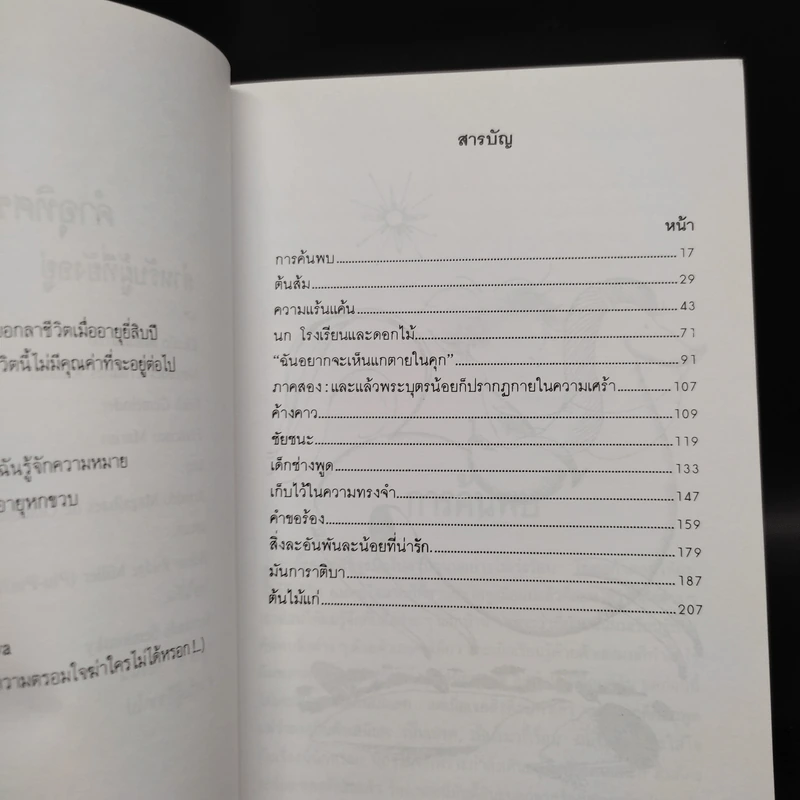 อกลาชีวิตเมื่ออายุยี่สิบปี
วิตนี้ไม่มีคุณค่าที่จะอยู่ต่อไป
ฉันรู้จักความหมาย
อายุหกขวบ
วามตรอมใจฆ่าใครไม่ได้หรอก L)
สารบัญ
หน้า
การค้นพบ 17
ต้นส้ม 29
ความแร้นแค้น 43
นก โรงเรียนและดอกไม้ 71
“ฉันอยากจะเห็นแกตายในคุก” 91
ภาคสอง : และแล้วพระบุตรน้อยก็ปรากฏกายในความเศร้า 107
ค้างคาว 109
ชัยชนะ 119
เด็กช่างพูด 133
เก็บไว้ในความทรงจำ 147
คำขอร้อง 159
สิ่งละอันพันละน้อยที่น่ารัก 179
มันการาติบา 187
ต้นไม้แก่ 207